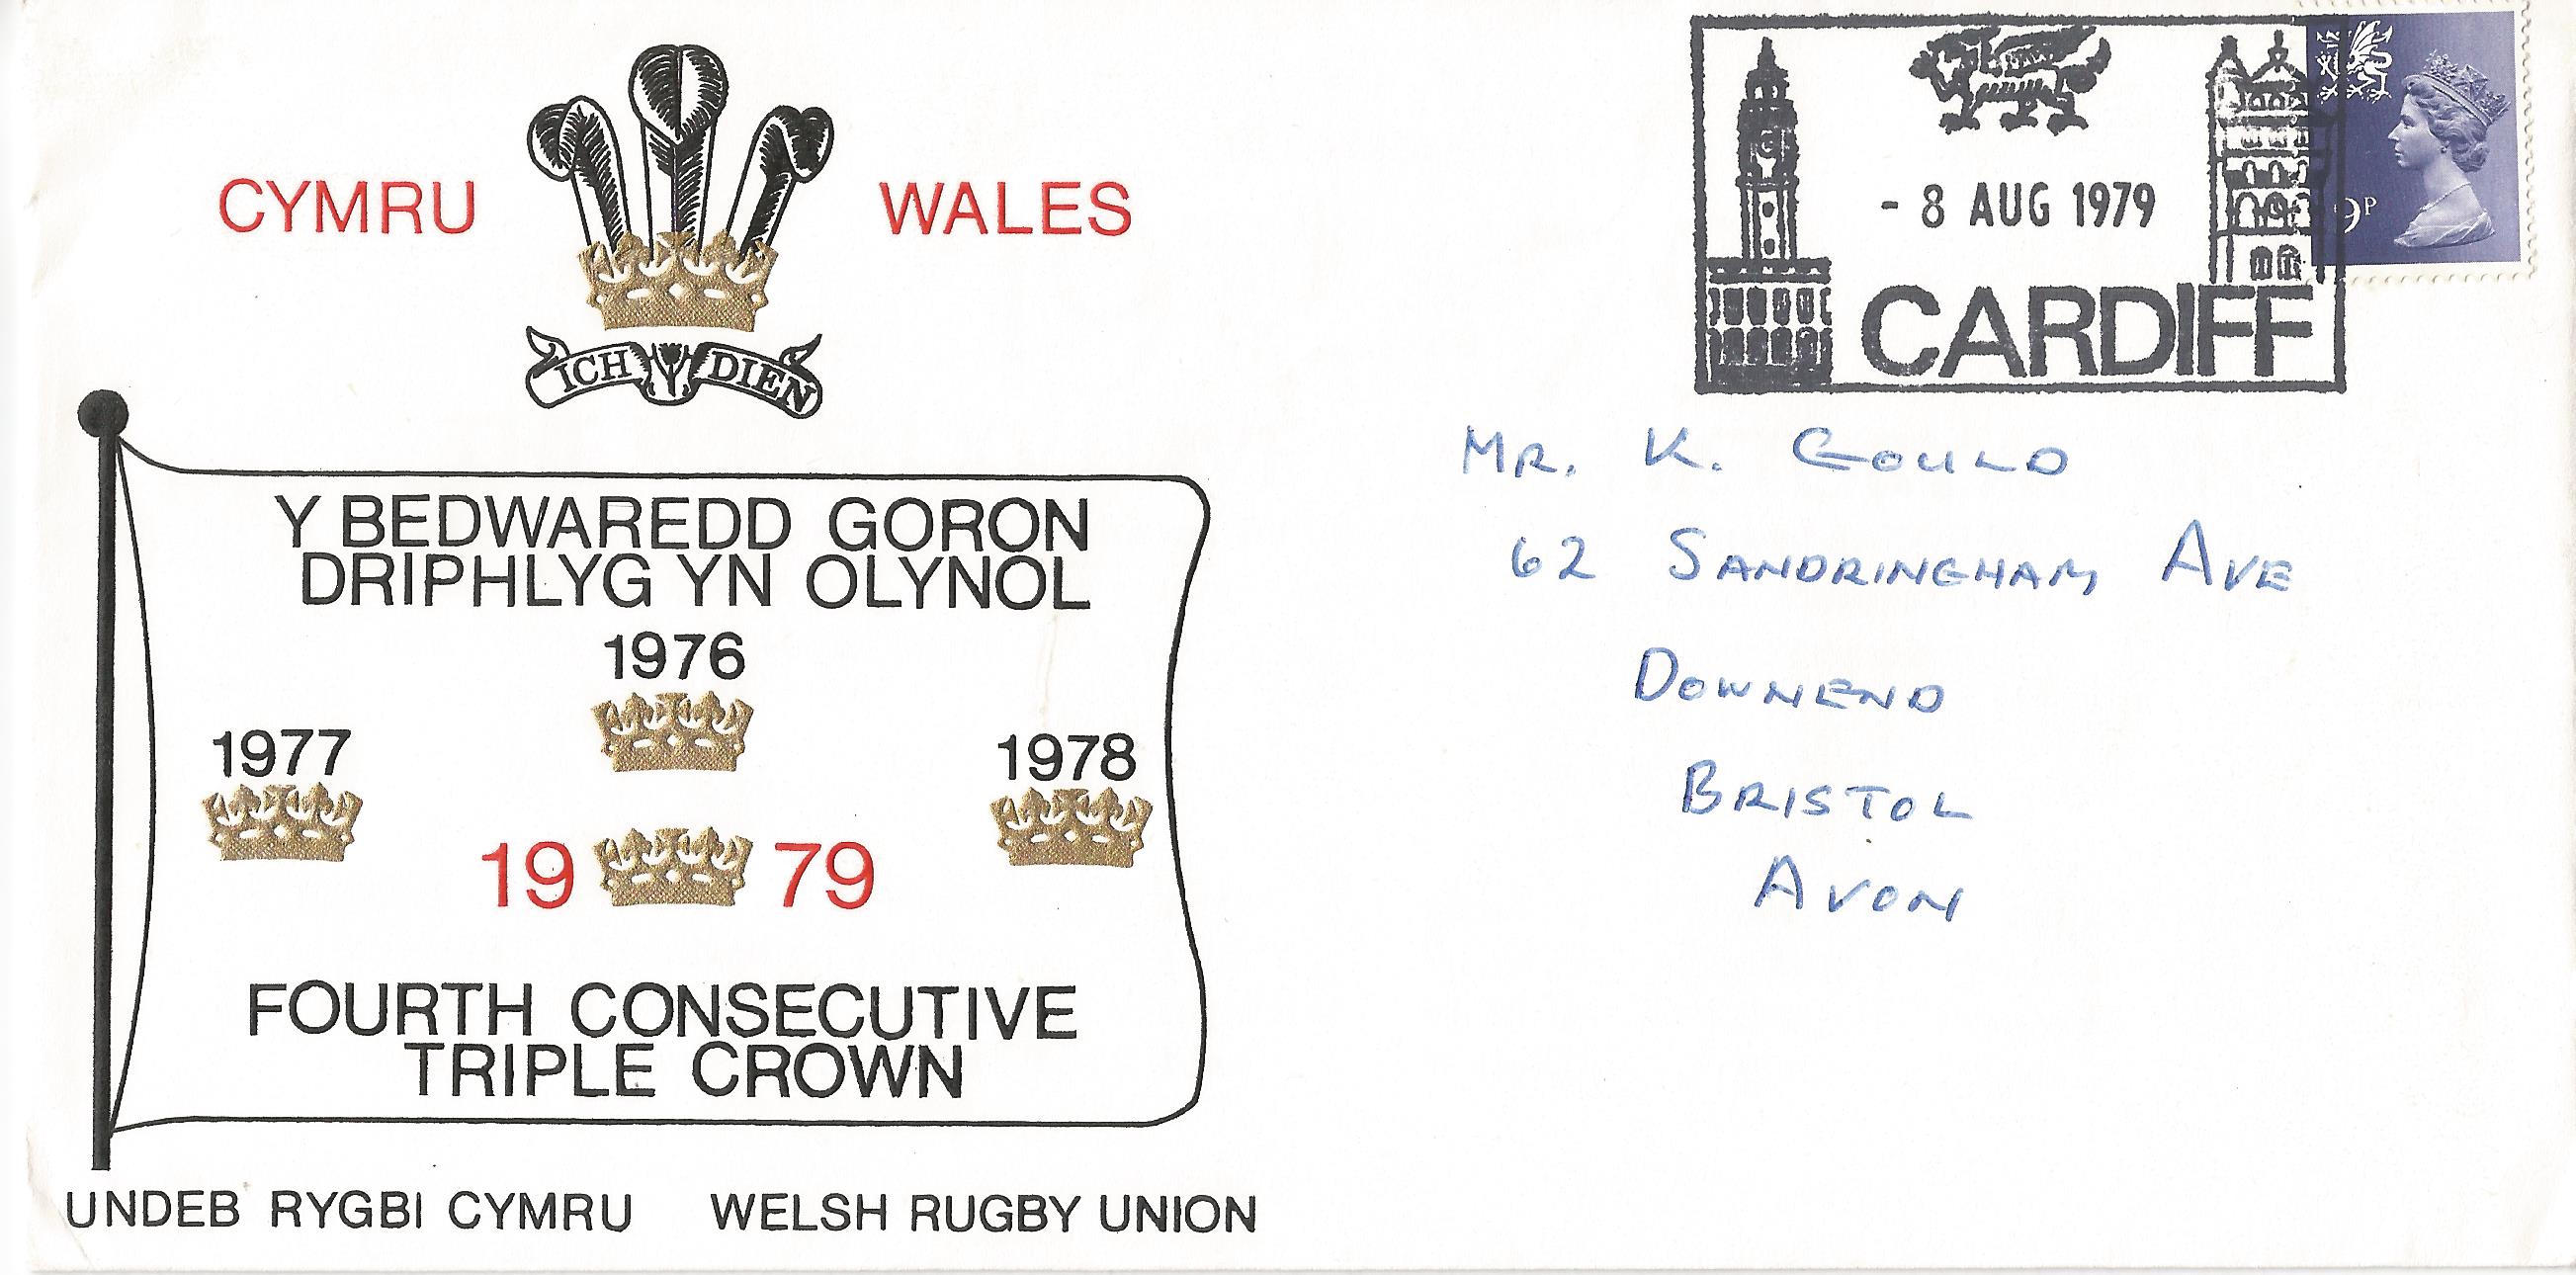 CYMRU WALES
ICH DIEN
Y BEDWAREDD GORON
DRIPHLYG YN OLYNOL
1976
1977
1978
1979
FOURTH CONSECUTIVE
TRIPLE CROWN
UNDEB RYGBI CYMRU WELSH RUGBY UNION
- 8 AUG 1979
CARDIFF
9P
MR. K. GOULD
62 SANDRINGHAM AVE
DOWNEND
BRISTOL
AVON